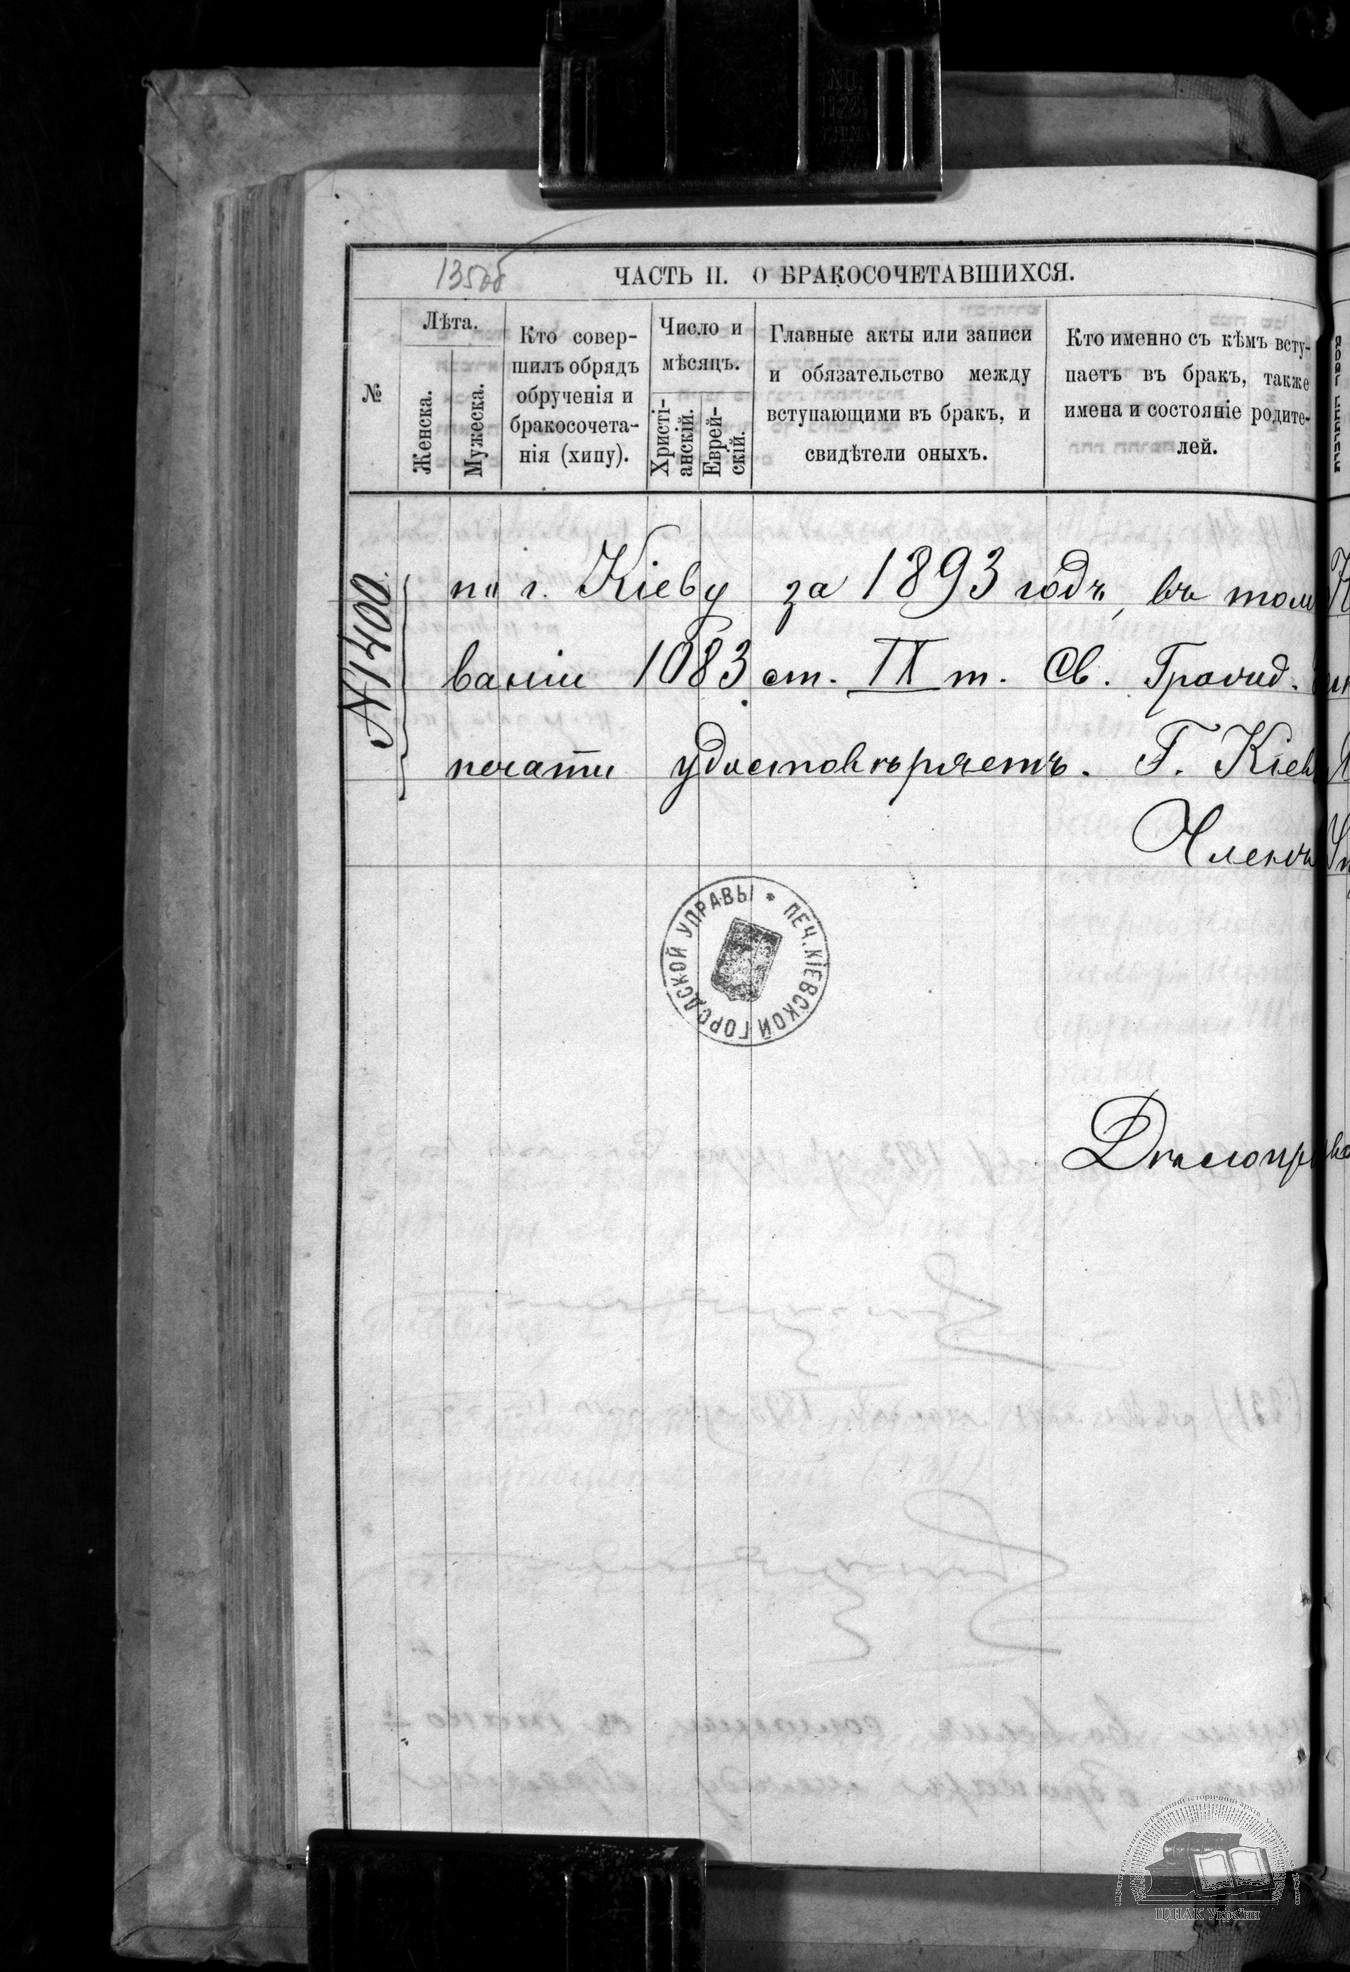 135об
ЧАСТЬ II. О БРАКОСОЧЕТАВШИХСЯ.
№
Лѣта.
Женска.
Мужеска.
Кто совер-
шилъ обрядъ
обрученія и
бракосочета-
нія (хипу).
Число и
мѣсяцъ.
Христі-
анскій.
Еврей-
скій.
Главные акты или записи
и обязательство между
вступающими въ бракъ, и
свидѣтели оныхъ.
Кто именно съ кѣмъ всту-
паетъ въ бракъ, также
имена и состояніе родите-
лей.
№1400.
по г. Кіеву за 1893 годъ, въ том
ваніи 1083 ст. IX т. Св. Гражд.
печати удостовѣряетъ. Г. Кіев
Членъ
ПЕЧ. КІЕВСКОЙ ГОРОДСКОЙ УПРАВЫ *
Дѣлопр
ЦДІАК України